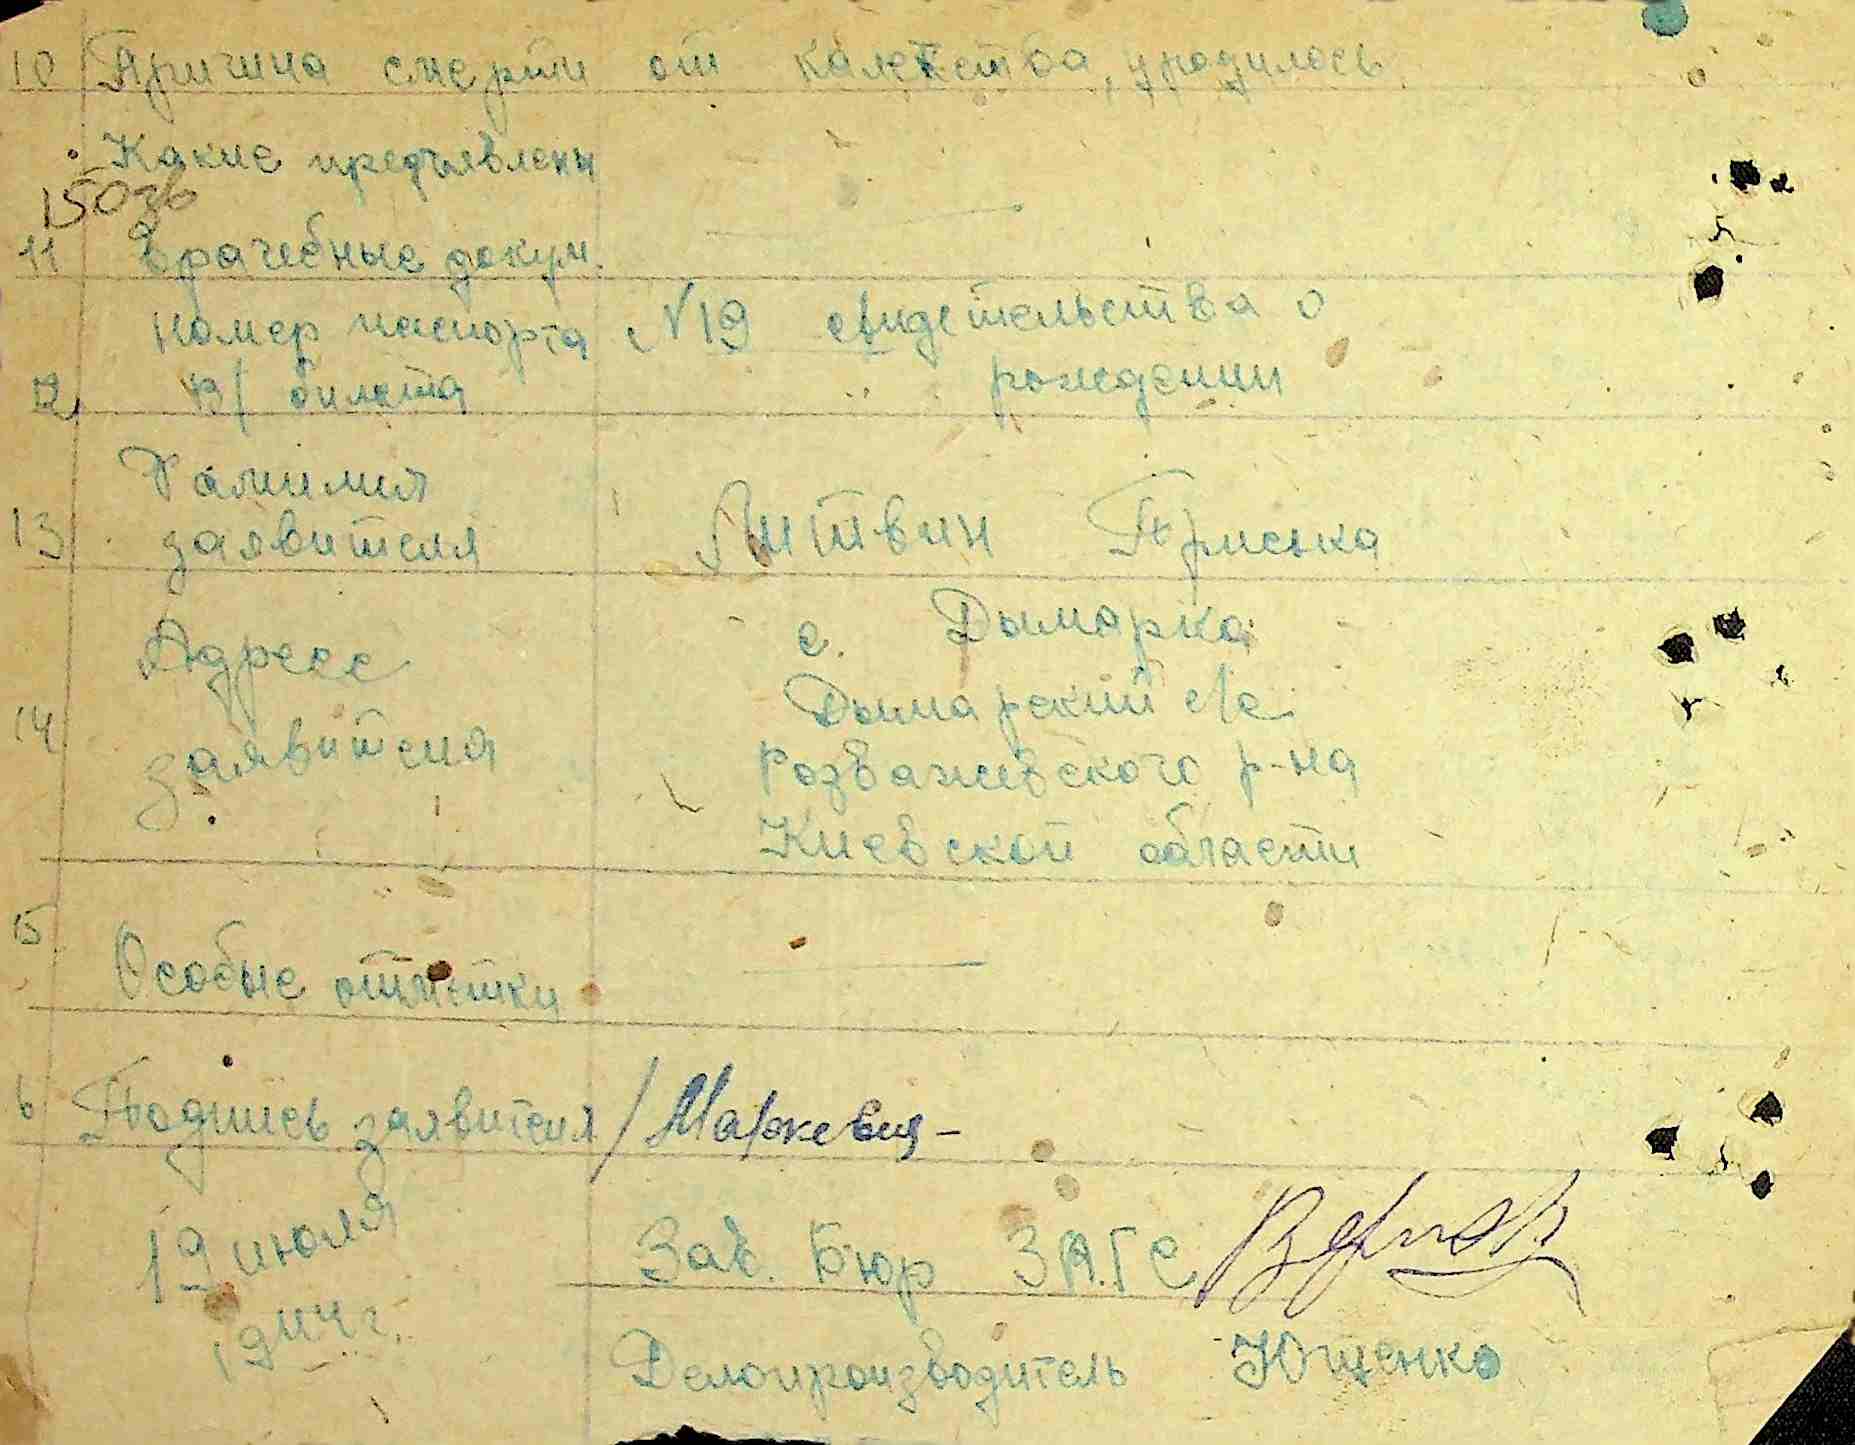 10 Причина смерти от калекства, уродилось
Какие предъявлены
11 врачебные докум.
номер паспорта N 19 свидетельства о
12 В/ билета рождении
Фамилия
13 заявителя Литвин Приська
Адресс с. Дымарка
Дымарский с/с
14 заявителя Розважевского р-на
Киевской области
15
Особые отметки
6 Подпись заявителя / Маркевич
19 июля Зав. Бюр ЗАГС
1944 г.
Делопроизводитель Ющенко